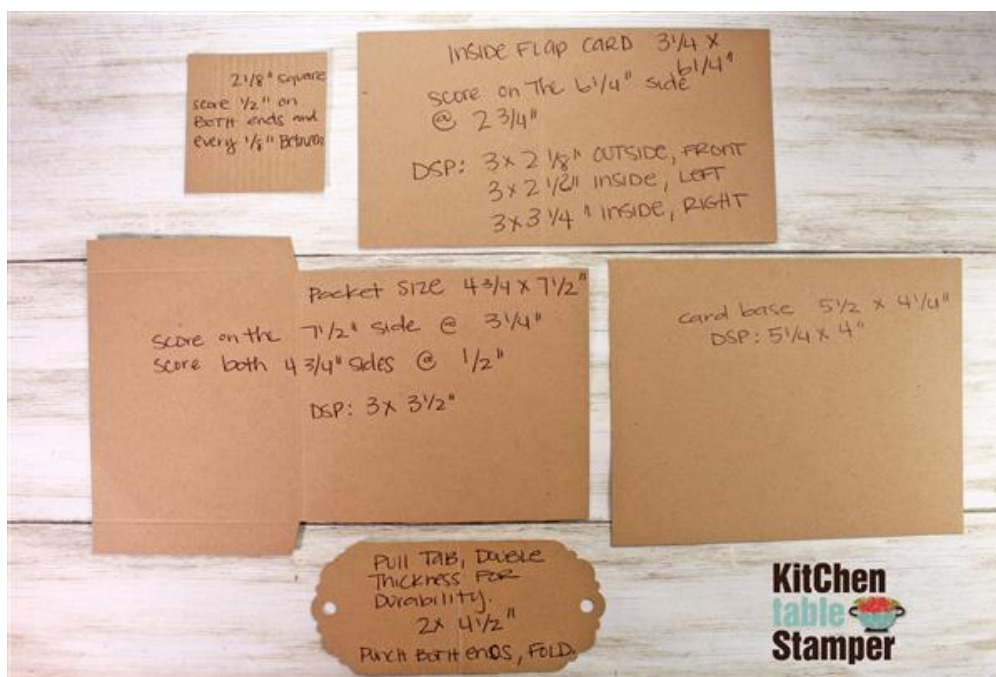 2 1/8" square
score 1/2" on
BOTH ends and
every 1/8" Between
INSIDE FLAP CARD 3 1/4 x
6 1/4"
score on the 6 1/4" side
@ 2 3/4"
DSP: 3 x 2 1/8" OUTSIDE, FRONT
3 x 2 1/2" INSIDE, LEFT
3 x 3 1/4" INSIDE, RIGHT
Pocket SIZE 4 3/4 x 7 1/2"
score on the 7 1/2" side @ 3 1/4"
score both 4 3/4" sides @ 1/2"
DSP: 3 x 3 1/2"
card base 5 1/2 x 4 1/4"
DSP: 5 1/4 x 4"
Pull TAB, DOUBLE
Thickness FOR
Durability.
2 x 4 1/2"
Punch BOTH ends, FOLD.
KitChen
table
Stamper